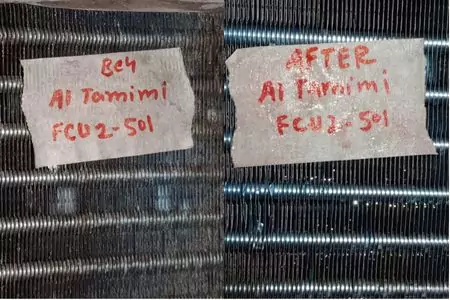 Be4
Al Tamimi
FCU2-501
AFTER
Al Tamimi
FCU2-501